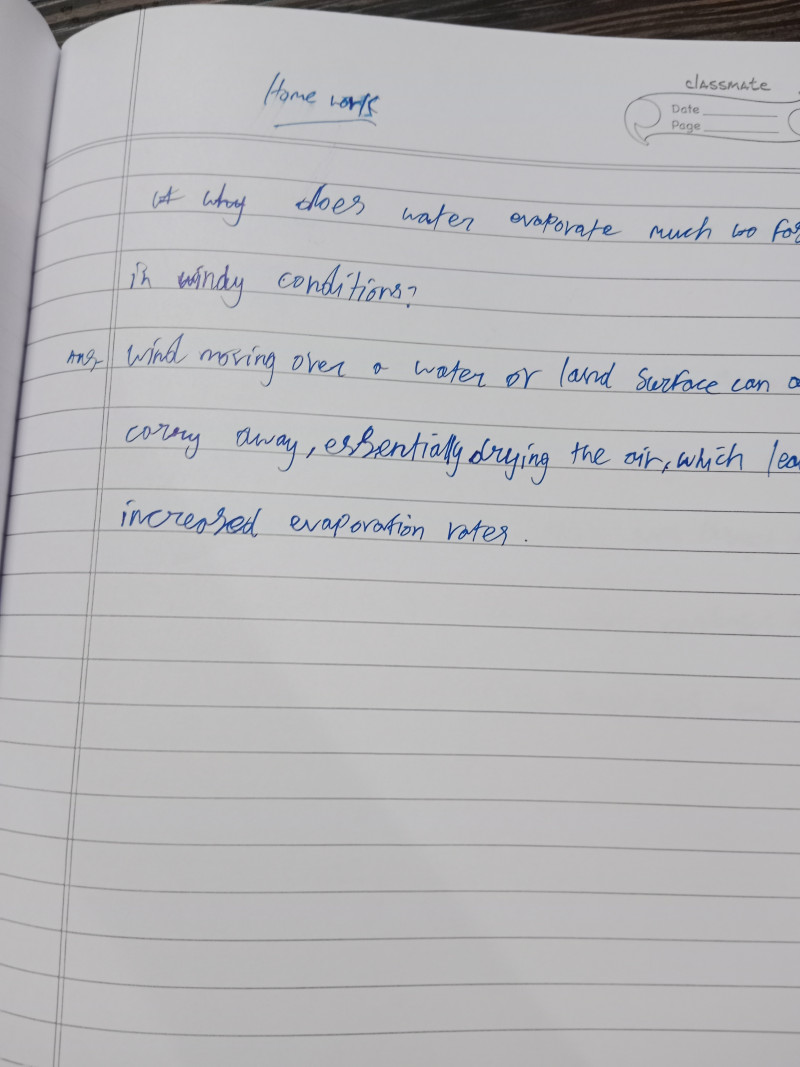 Home works
classmate
Date
Page
why does water evaporate much
in windy conditions?
Ans, wind moving over a water or land surface can
carry away, essentially drying the air, which
increased evaporation rates.